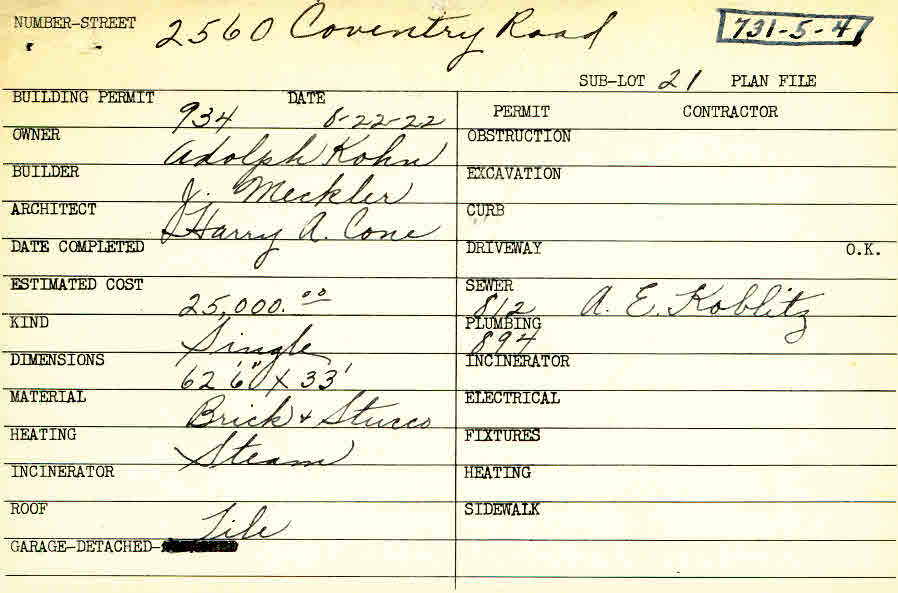 NUMBER-STREET 2560 Coventry Road 731-5-4
SUB-LOT 21 PLAN FILE
BUILDING PERMIT 934 DATE 8-22-22
OWNER Adolph Kohn
BUILDER J. Meckler
ARCHITECT Harry A. Cone
DATE COMPLETED
ESTIMATED COST 25,000.00
KIND Single
DIMENSIONS 62'6" X 33'
MATERIAL Brick + Stucco
HEATING Steam
INCINERATOR
ROOF Tile
GARAGE-DETACHED-
PERMIT CONTRACTOR
OBSTRUCTION
EXCAVATION
CURB
DRIVEWAY O.K.
SEWER 812 A. E. Koblitz
PLUMBING 894
INCINERATOR
ELECTRICAL
FIXTURES
HEATING
SIDEWALK